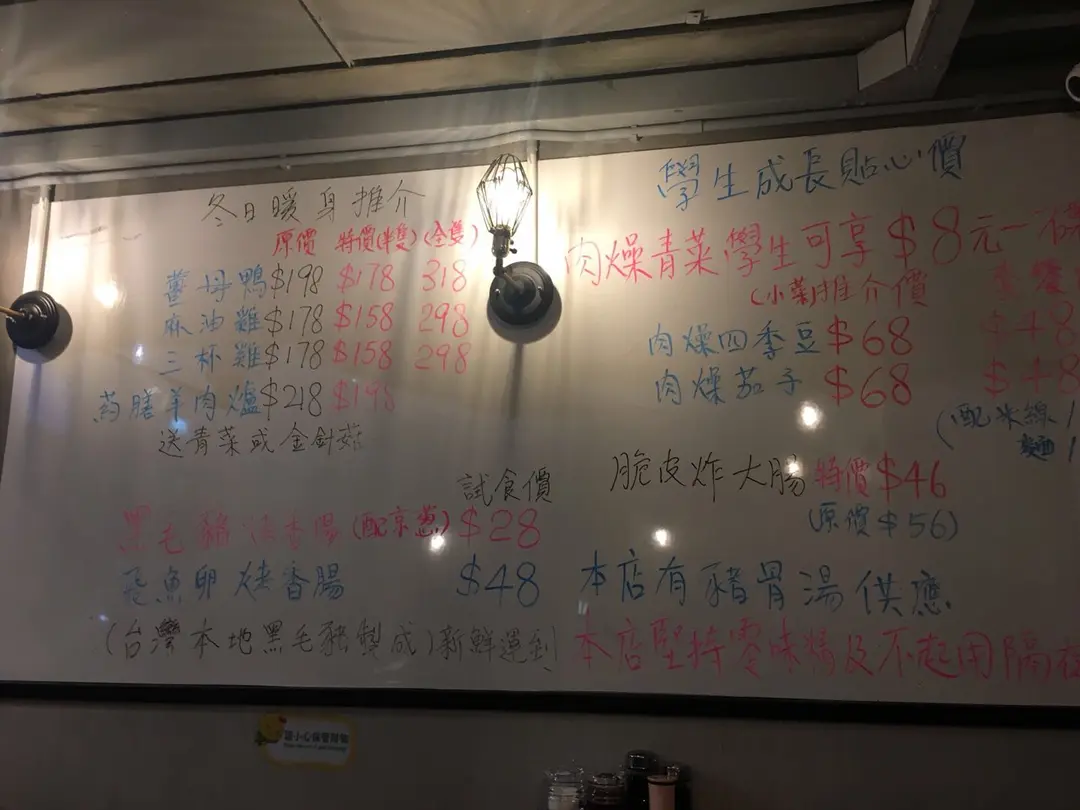 冬日暖身推介
原價 特價(半隻) (全隻)
薑母鴨 $198 $178 318
麻油雞 $178 $158 298
三杯雞 $178 $158 298
葯膳羊肉爐 $218 $198
送青菜或金針菇
試食價
黑毛豬 香腸 (配京蔥) $28
飛魚卵烤香腸 $48
(台灣本地黑毛豬製成) 新鮮運到
學生成長貼心價
肉燥青菜學生可享 $8元一
(小菜)推介價
肉燥四季豆 $68 $48
肉燥茄子 $68 $48
(配米線/
麵/
脆皮炸大腸 特價 $46
(原價 $56)
本店有豬骨湯供應
本店堅持零味精及不起用隔夜
請小心保管財物